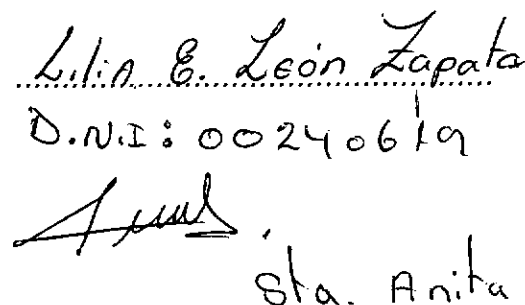 Lilia E. León Zapata
D.N.I: 00240619
Sta. Anita